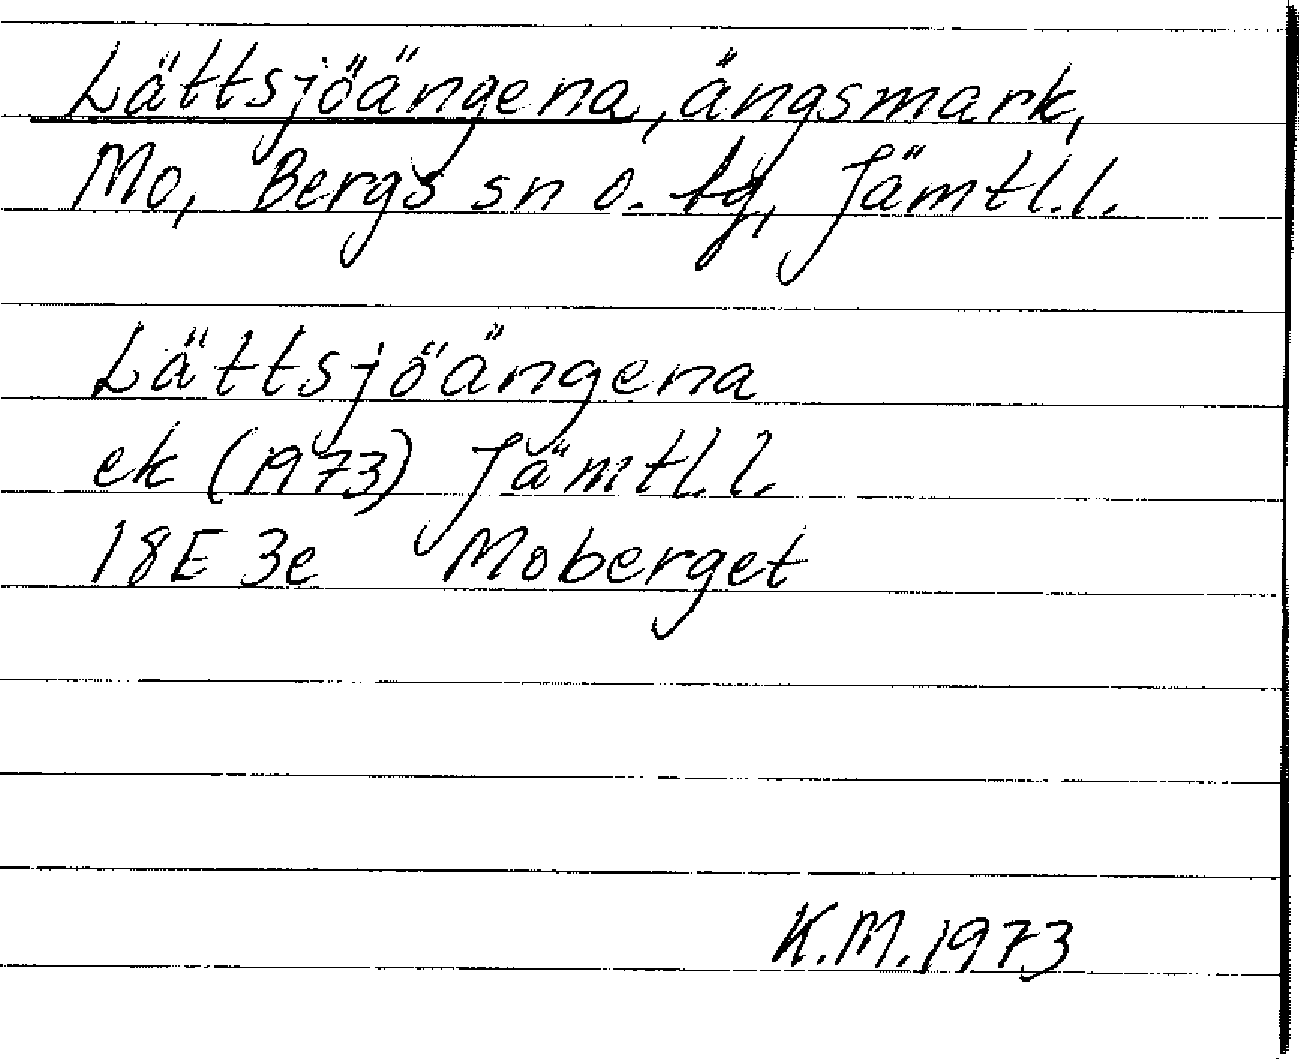 Lättsjöängena, ängsmark,
Mo, Bergs sn o. tg, Jämtl.l.
Lättsjöängena
ek (1973) Jämtl.l.
18E 3e Moberget
K.M.1973